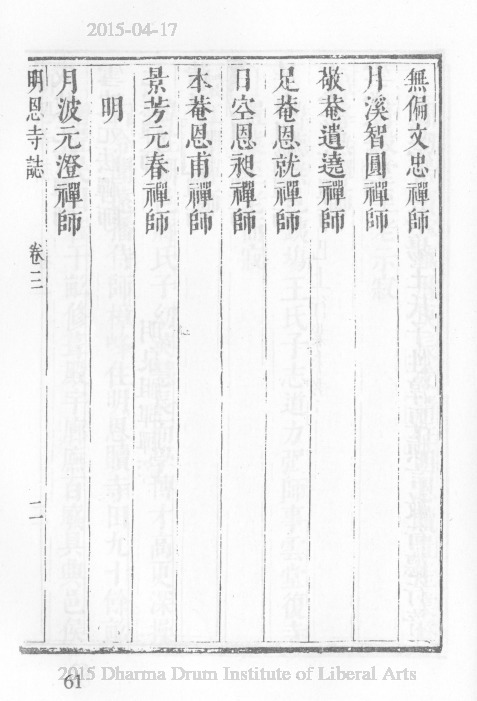 2015-04-17
無偏文忠禪師
月溪智圓禪師
敬菴遺遶禪師
足菴恩就禪師
日空恩昶禪師
本菴恩甫禪師
景芳元春禪師
明
月波元澄禪師
明恩寺誌 卷三 二
2015 Dharma Drum Institute of Liberal Arts
61